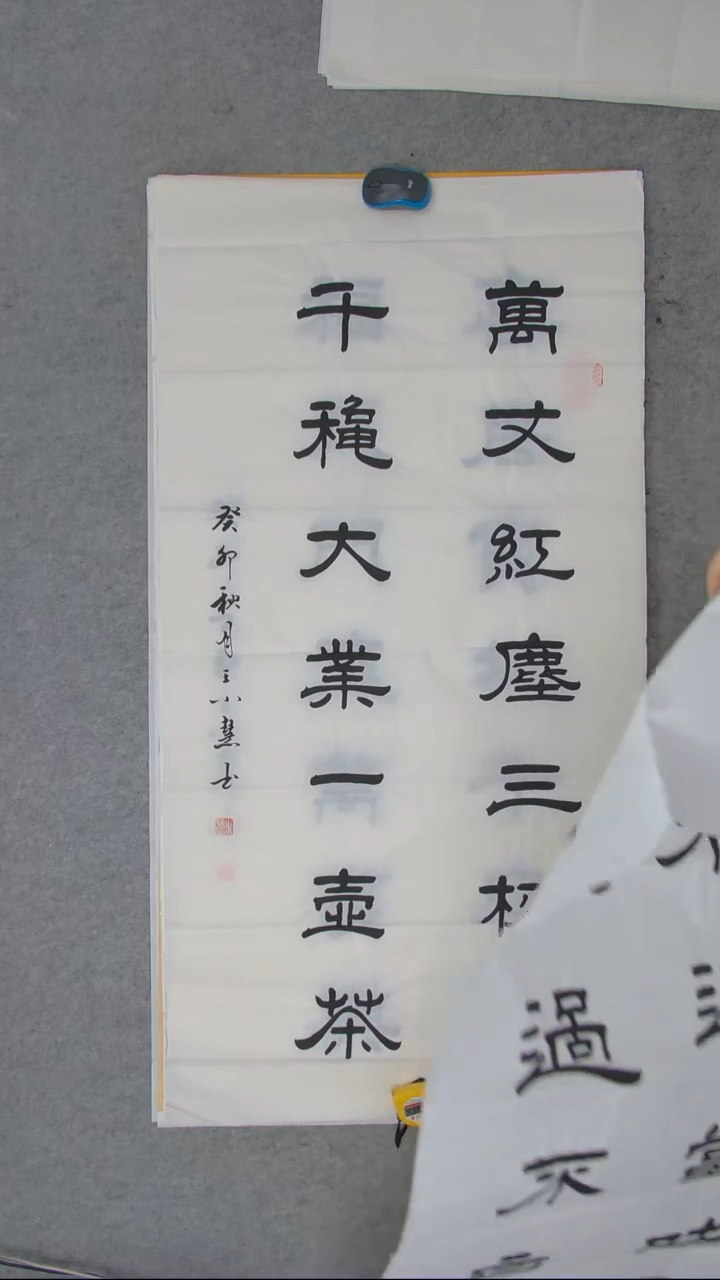 萬丈紅塵三
千穐大業一壺茶
癸卯秋月王小慧书
過